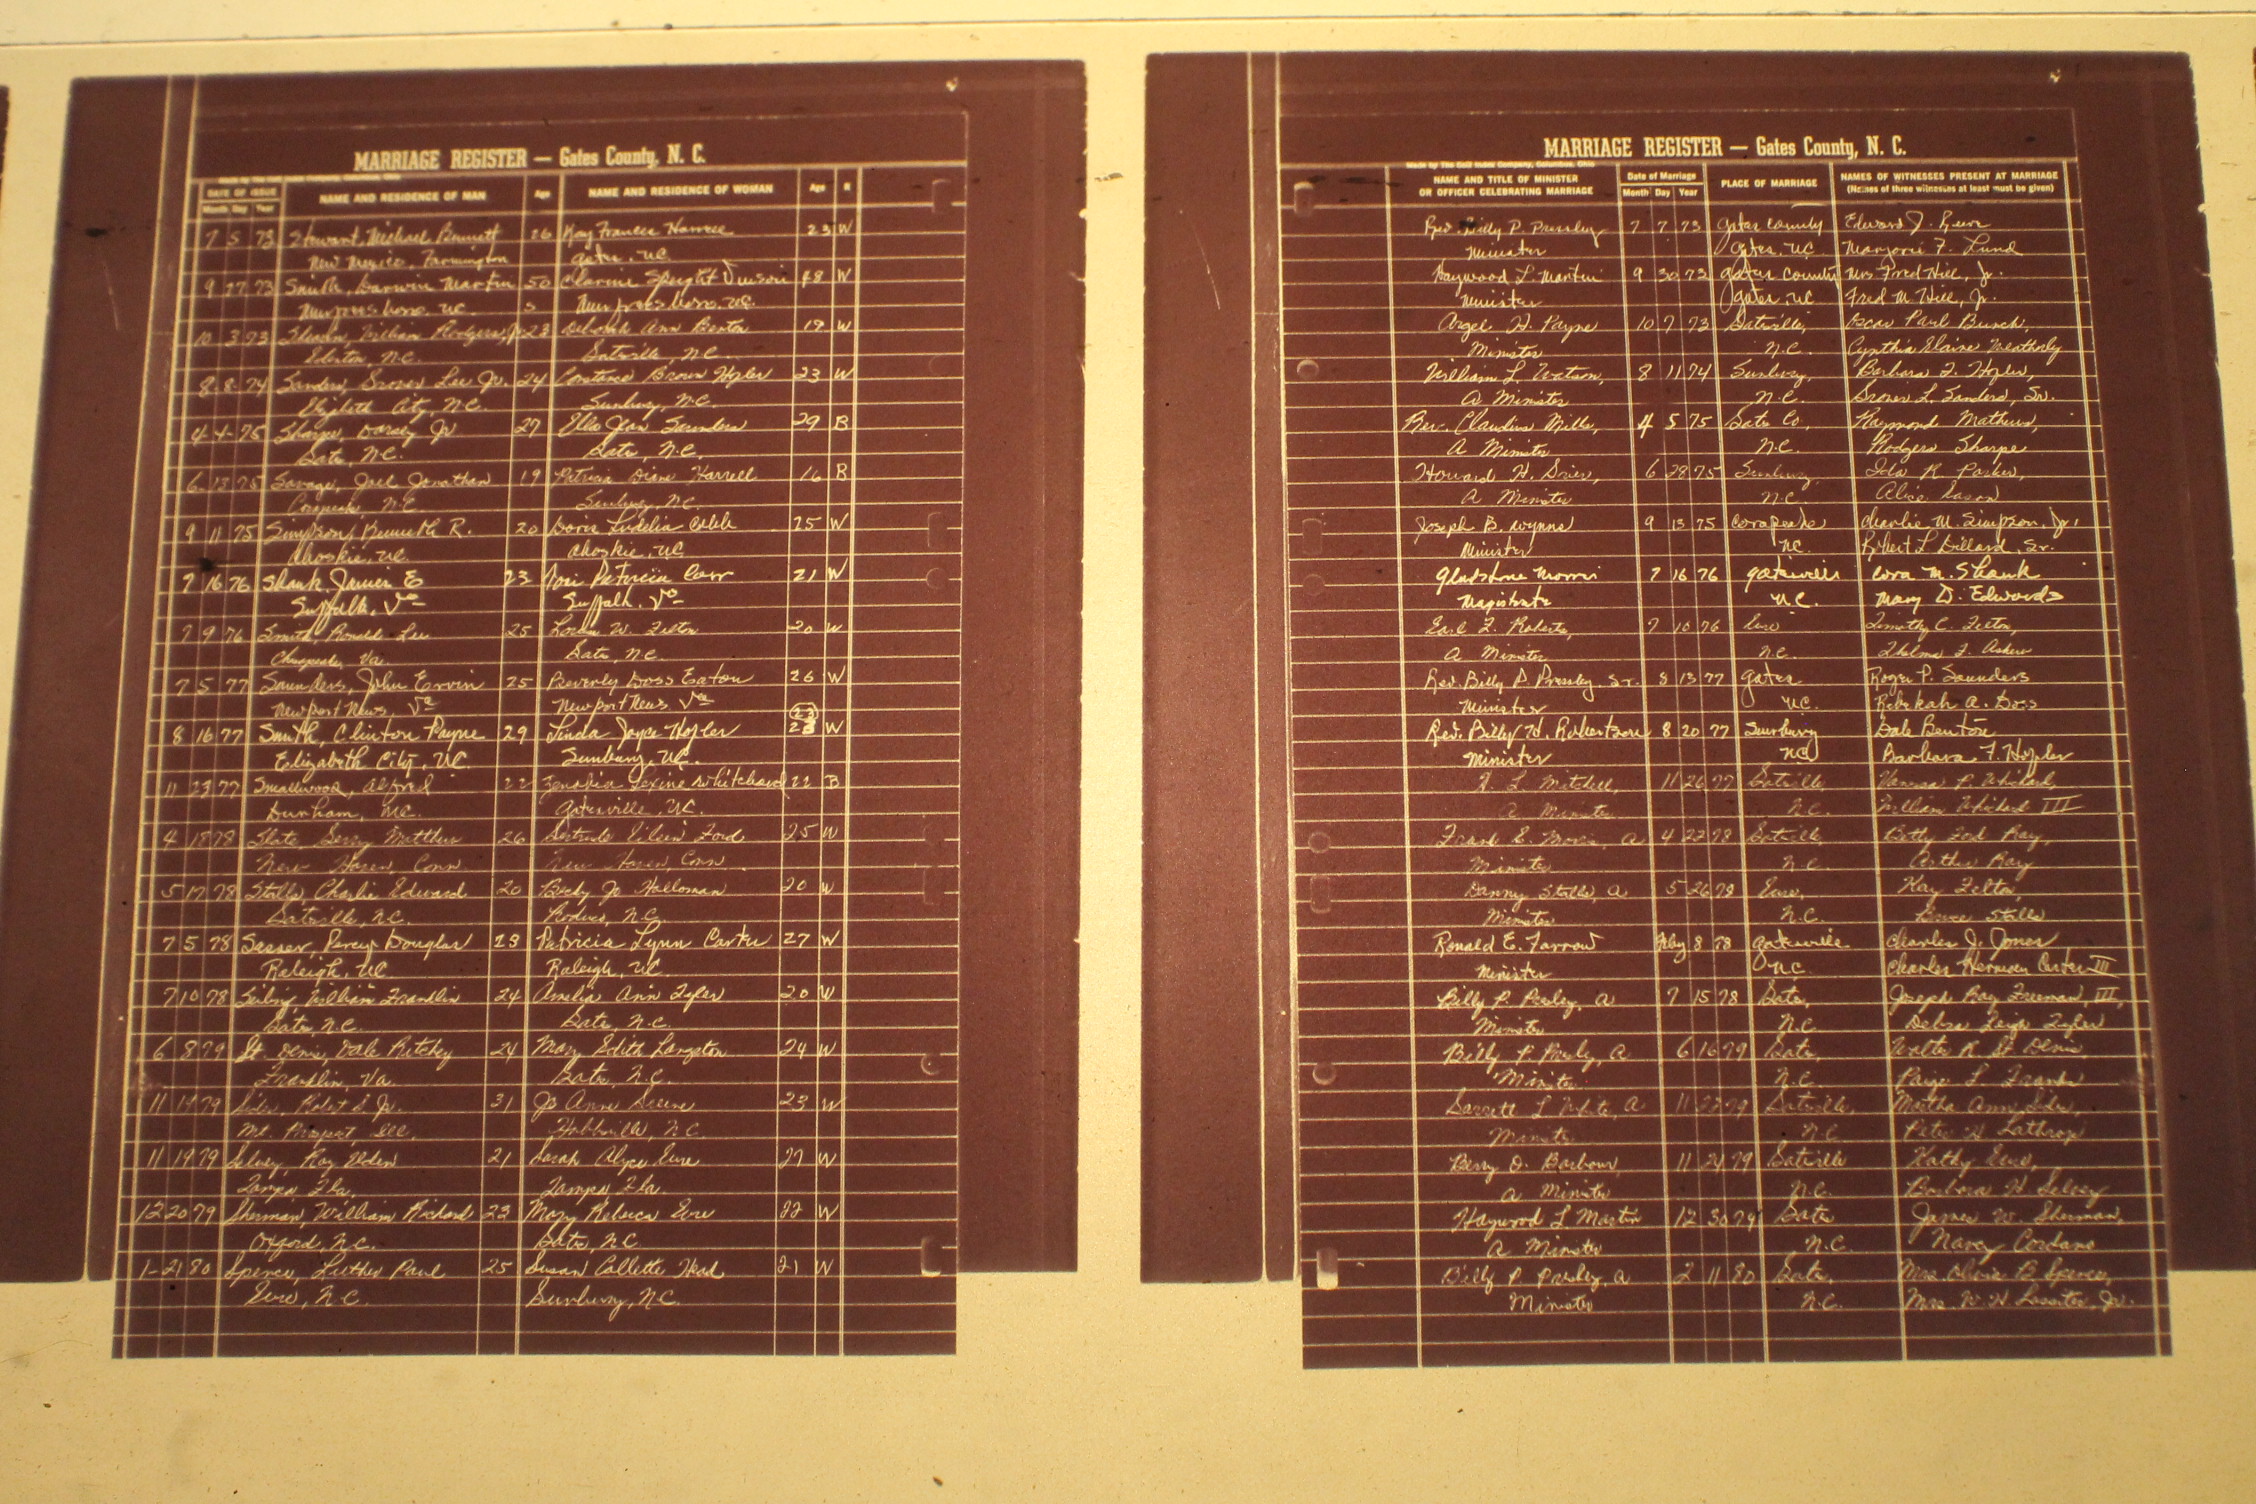 MARRIAGE REGISTER — Gates County, N. C.
DATE OF ISSUE
Month Day Year
NAME AND RESIDENCE OF MAN
Age
NAME AND RESIDENCE OF WOMAN
Age
R
7 5 73 Stewart, Michael Bennett 26 Kay Frances Harrell 23 W
New Mexico, Farmington Gates, NC
9 27 73 Smith, Darwin Martin 50 Clarine Speight Vinson 48 W
Murfreesboro, NC Murfreesboro, NC
10 3 73 William Rodgers, Jr 23 Deborah Ann Benton 19 W
Edenton, N.C. Gatesville, N.C.
8-8-74 Sanders, Grover Lee Jr. 24 Constance Brown Hofler 23 W
Elizabeth City, N.C. Sunbury, N.C.
4-4-75 Sharpe, Dorsey Jr 27 Ella Jean Saunders 29 B
Gates, N.C. Gates, N.C.
6-13 75 Savage, Joel Jonathan 19 Patricia Diane Harrell 16 B
Corapeake, N.C. Sunbury, N.C.
9 11 75 Simpson, Kenneth R. 20 Doris Cobb 25 W
Ahoskie, NC Ahoskie, NC
7 16 76 Shank, James E 23 Patricia Carr 21 W
Suffolk, Va Suffolk, Va
7 9 76 Smith, Ronald Lee 25 W. Felton 20 W
Chesapeake, Va. Gates, N.C.
7 5 77 Saunders, John Ervin 25 Beverly Doss Eaton 26 W
Newport News, Va Newport News, Va
8 16 77 Smith, Clinton Payne 29 Linda Joyce Hofler 23 W
Elizabeth City, NC Sunbury, NC.
11 23 77 Smallwood, Alfred 22 Zenobia Lexine Whitehead 22 B
Durham, NC. Gatesville, NC.
4 18 78 Slate Gerry Matthew 26 Gertrude Eileen Ford 25 W
New Haven Conn New Haven, Conn
5 17 78 Stalls, Charlie Edward 20 Becky Jo Holloman 20 W
Gatesville, N.C. Roduco, N.C.
7 5 78 Sasser, Percy Douglas 23 Patricia Lynn Carter 27 W
Raleigh, NC Raleigh, NC
7 10 78 William Franklin 24 Amelia Ann Tyler 20 W
Gates, N.C. Gates, N.C.
6 8 79 St. Denis, Dale Ritchey 24 Mary Edith Langston 24 W
Franklin, Va Gates, N.C.
11 19 79 Robert S. Jr. 31 Jo Anne Greene 23 W
Mt. Prospect, Ill. Hobbsville, N.C.
11 19 79 Selvey, Roy Elden 21 Sarah Alyce Eure 27 W
Tampa, Fla. Tampa, Fla.
12 20 79 Sherman, William Richard 23 Mary Rebecca Eure 22 W
Oxford, N.C. Gates, N.C.
1-21 80 Spence, Luther Paul 25 Susan Collette Head 21 W
Eure, N.C. Sunbury, N.C.
MARRIAGE REGISTER — Gates County, N. C.
NAME AND TITLE OF MINISTER
OR OFFICER CELEBRATING MARRIAGE
Date of Marriage
Month Day Year
PLACE OF MARRIAGE
NAMES OF WITNESSES PRESENT AT MARRIAGE
(Names of three witnesses at least must be given)
Rev. Billy P. Pressley 7 7 73 Gates County Edward J.
Minister Gates, NC Marjorie F. Lund
Haywood L. Martin 9 30 73 Gates County Mrs. Fred Hill, Jr.
Minister Gates NC Fred M. Hill, Jr.
Angel H. Payne 10 7 73 Gatesville, Oscar Paul Bunch,
Minister N.C. Cynthia Elaine Weatherly
William L. Watson, 8 11 74 Sunbury, Barbara F. Hofler,
A Minister N.C. Grover L. Sanders, Sr.
Rev. Claudius Mills, 4 5 75 Gates Co, Raymond Mathews,
A Minister N.C. Rodgers Sharpe
Howard H. 6 28 75 Sunbury, Ida R. Parker,
A Minister N.C. Alice
Joseph B. Wynns 9 13 75 Corapeake Charlie M. Simpson, Jr,
Minister NC. Robert L Dillard, Sr.
Gladstone Morris 7 16 76 Gatesville Cora M. Shank
Magistrate N.C. Mary D. Edwards
Earl F. Roberts, 7 10 76 Eure Timothy C. Felton,
A Minister N.C. Thelma F. Askew
Rev. Billy P. Pressley, Sr. 8 13 77 Gates Roger P. Saunders
Minister N.C. Rebekah A. Doss
Rev. Billy H. Robertson 8 20 77 Sunbury Dale Benton
Minister NC Barbara F. Hofler
L Mitchell, 11 26 77 Gatesville, Vanessa P. Whichard,
A Minister N.C. William Whichard III
Frank E. A 4 22 78 Gatesville Betty Ford Ray,
Minister N.C. Arthur Ray
Danny Stalls, A 5 26 78 Eure, Kay Felton,
Minister N.C. Stalls
Ronald E. Farrow July 8 78 Gatesville Charles J. Jones
Minister N.C. Charles Herman Carter III
Billy P. Presley, A 7 15 78 Gates, Joseph Ray Freeman, III,
Minister N.C. Debra Leigh Tyler
Billy P. Presley, A 6 16 79 Gates, Walter R St Denis
Minister N.C. Paige L
Garrett L White, A 11 79 Gatesville, Martha Ann
Minister N.C. Peter H Lathrop
Berry O. Barbour, 11 24 79 Gatesville Kathy Eure,
A Minister N.C. Barbara H Selvey
Haywood L Martin 12 30 79 Gates James W. Sherman,
A Minister N.C. Nancy Cordano
Billy P Presley, A 2 11 80 Gates, Mrs. Olivia B. Spence,
Minister N.C. Mrs. W. H. Lassiter, Jr.